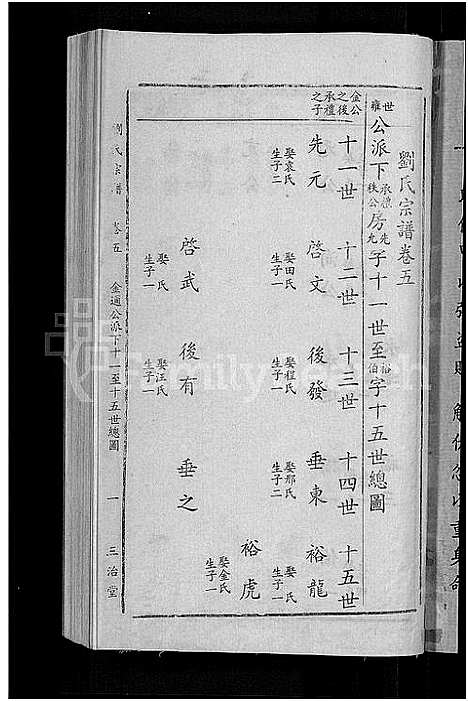 劉氏宗譜卷五
世雍公派下承禮秩公房先九字十一世至裕伯字十五世總圖
十一世 十二世 十三世 十四世 十五世
金公之後承禮之子
先元 娶袁氏生子二
啓文 娶田氏生子一
後發 娶程氏生子一
垂東 娶那氏生子二
裕龍 娶氏生子一
裕虎 娶金氏生子一
啓武 娶氏生子一
後有 娶汪氏生子一
垂之
劉氏宗譜 卷五 金通公派下十一至十五世總圖 一 三治堂
FamilySearch